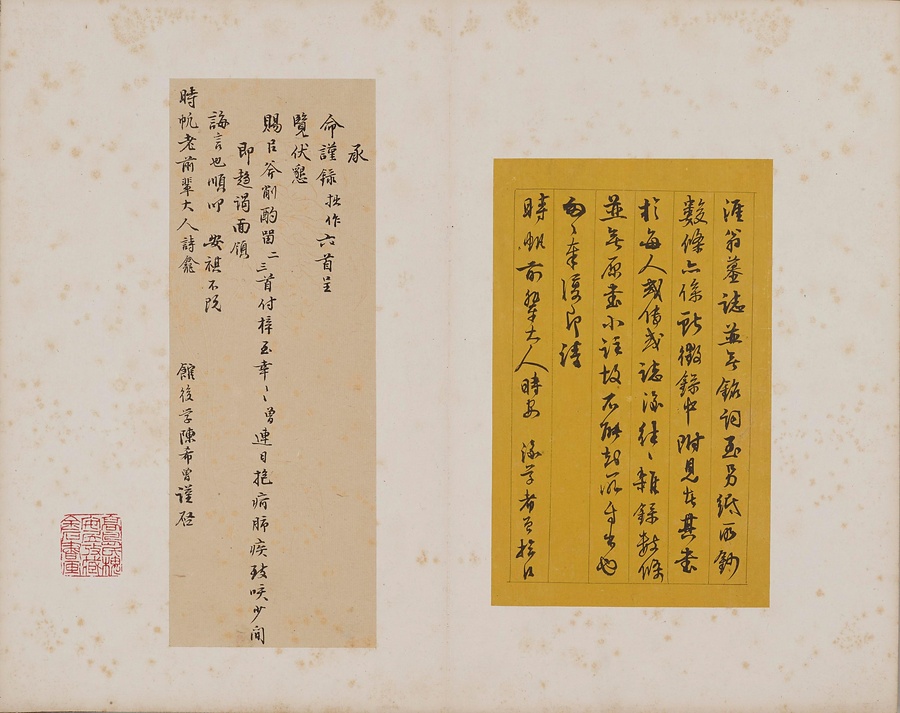 淮翁墓誌並無銘詞至另紙所鈔
數條亦係獻徵錄中附見者其書
於每人或傳或誌後往〻雜錄數條
並無原書小註故不能知所自出也
匆〻奉復即請
時帆前輩大人時安 後學
承
命謹錄拙作六首呈
覽伏懇
賜臣斧削酌留二三首付梓至幸〻曾連日抱痾肺疾致咳少間
即趨謁面領
誨言也順叩 安祺不既
時帆老前輩大人詩龕
館後學陳希曾謹啓
高島氏槐
安居收藏
金石書畫